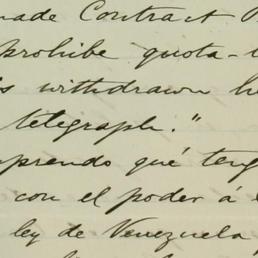 made Contract
prohibe quota-
is withdrawn
telegraph."
prendo qué teng
con el poder á
ley de Venezuela,